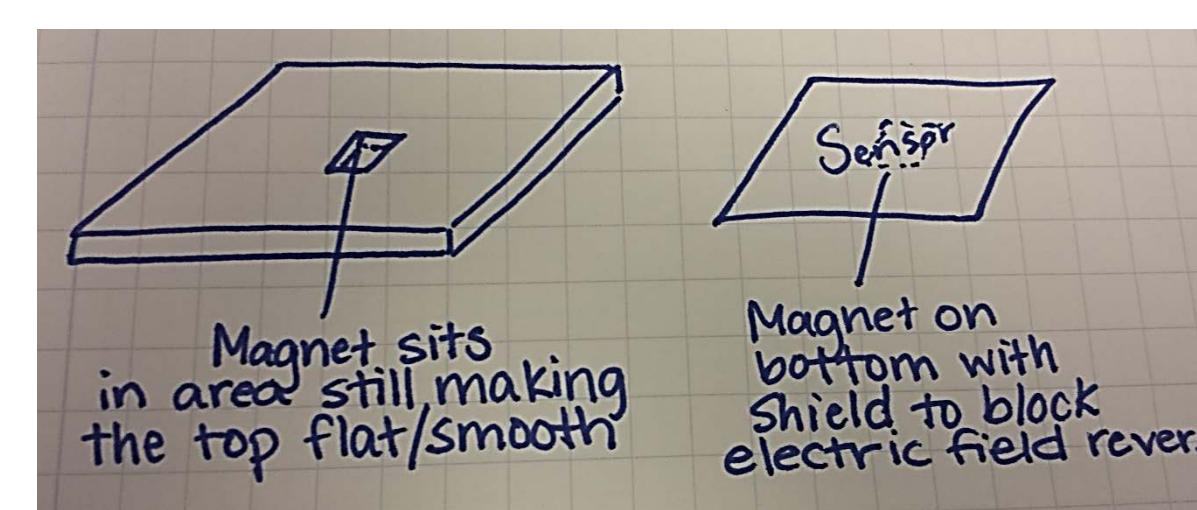 Magnet sits
in area still making
the top flat/smooth
Sensor
Magnet on
bottom with
Shield to block
electric field